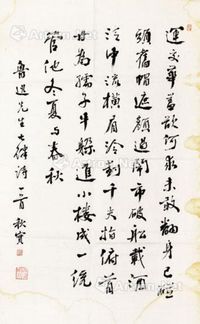 運交華蓋欲何求未敢翻身已碰
頭舊帽遮顏過鬧市破船載酒
泛中流橫眉冷對千夫指俯首
甘為孺子牛躲進小樓成一統
管他冬夏与春秋
魯迅先生七律詩